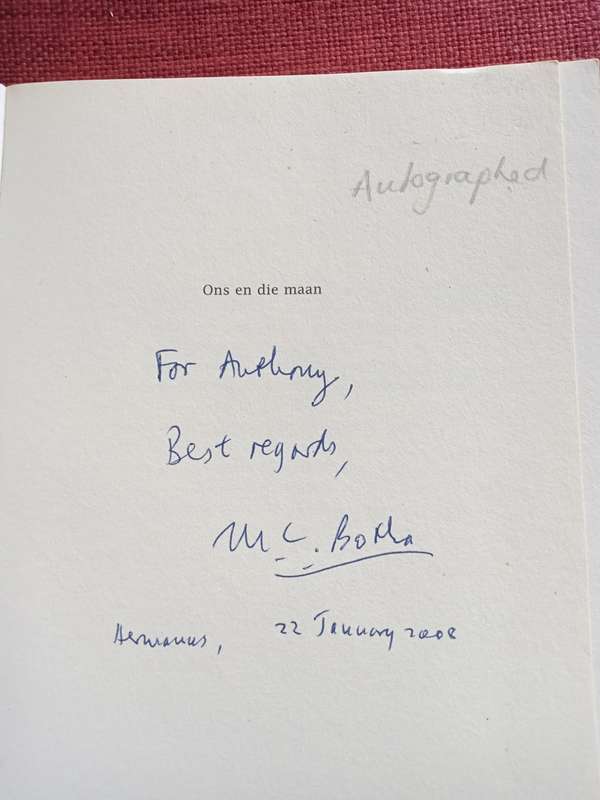 Autographed
Ons en die maan
For Anthony,
Best regards,
M C. Botha
Hermanus, 22 January 2008